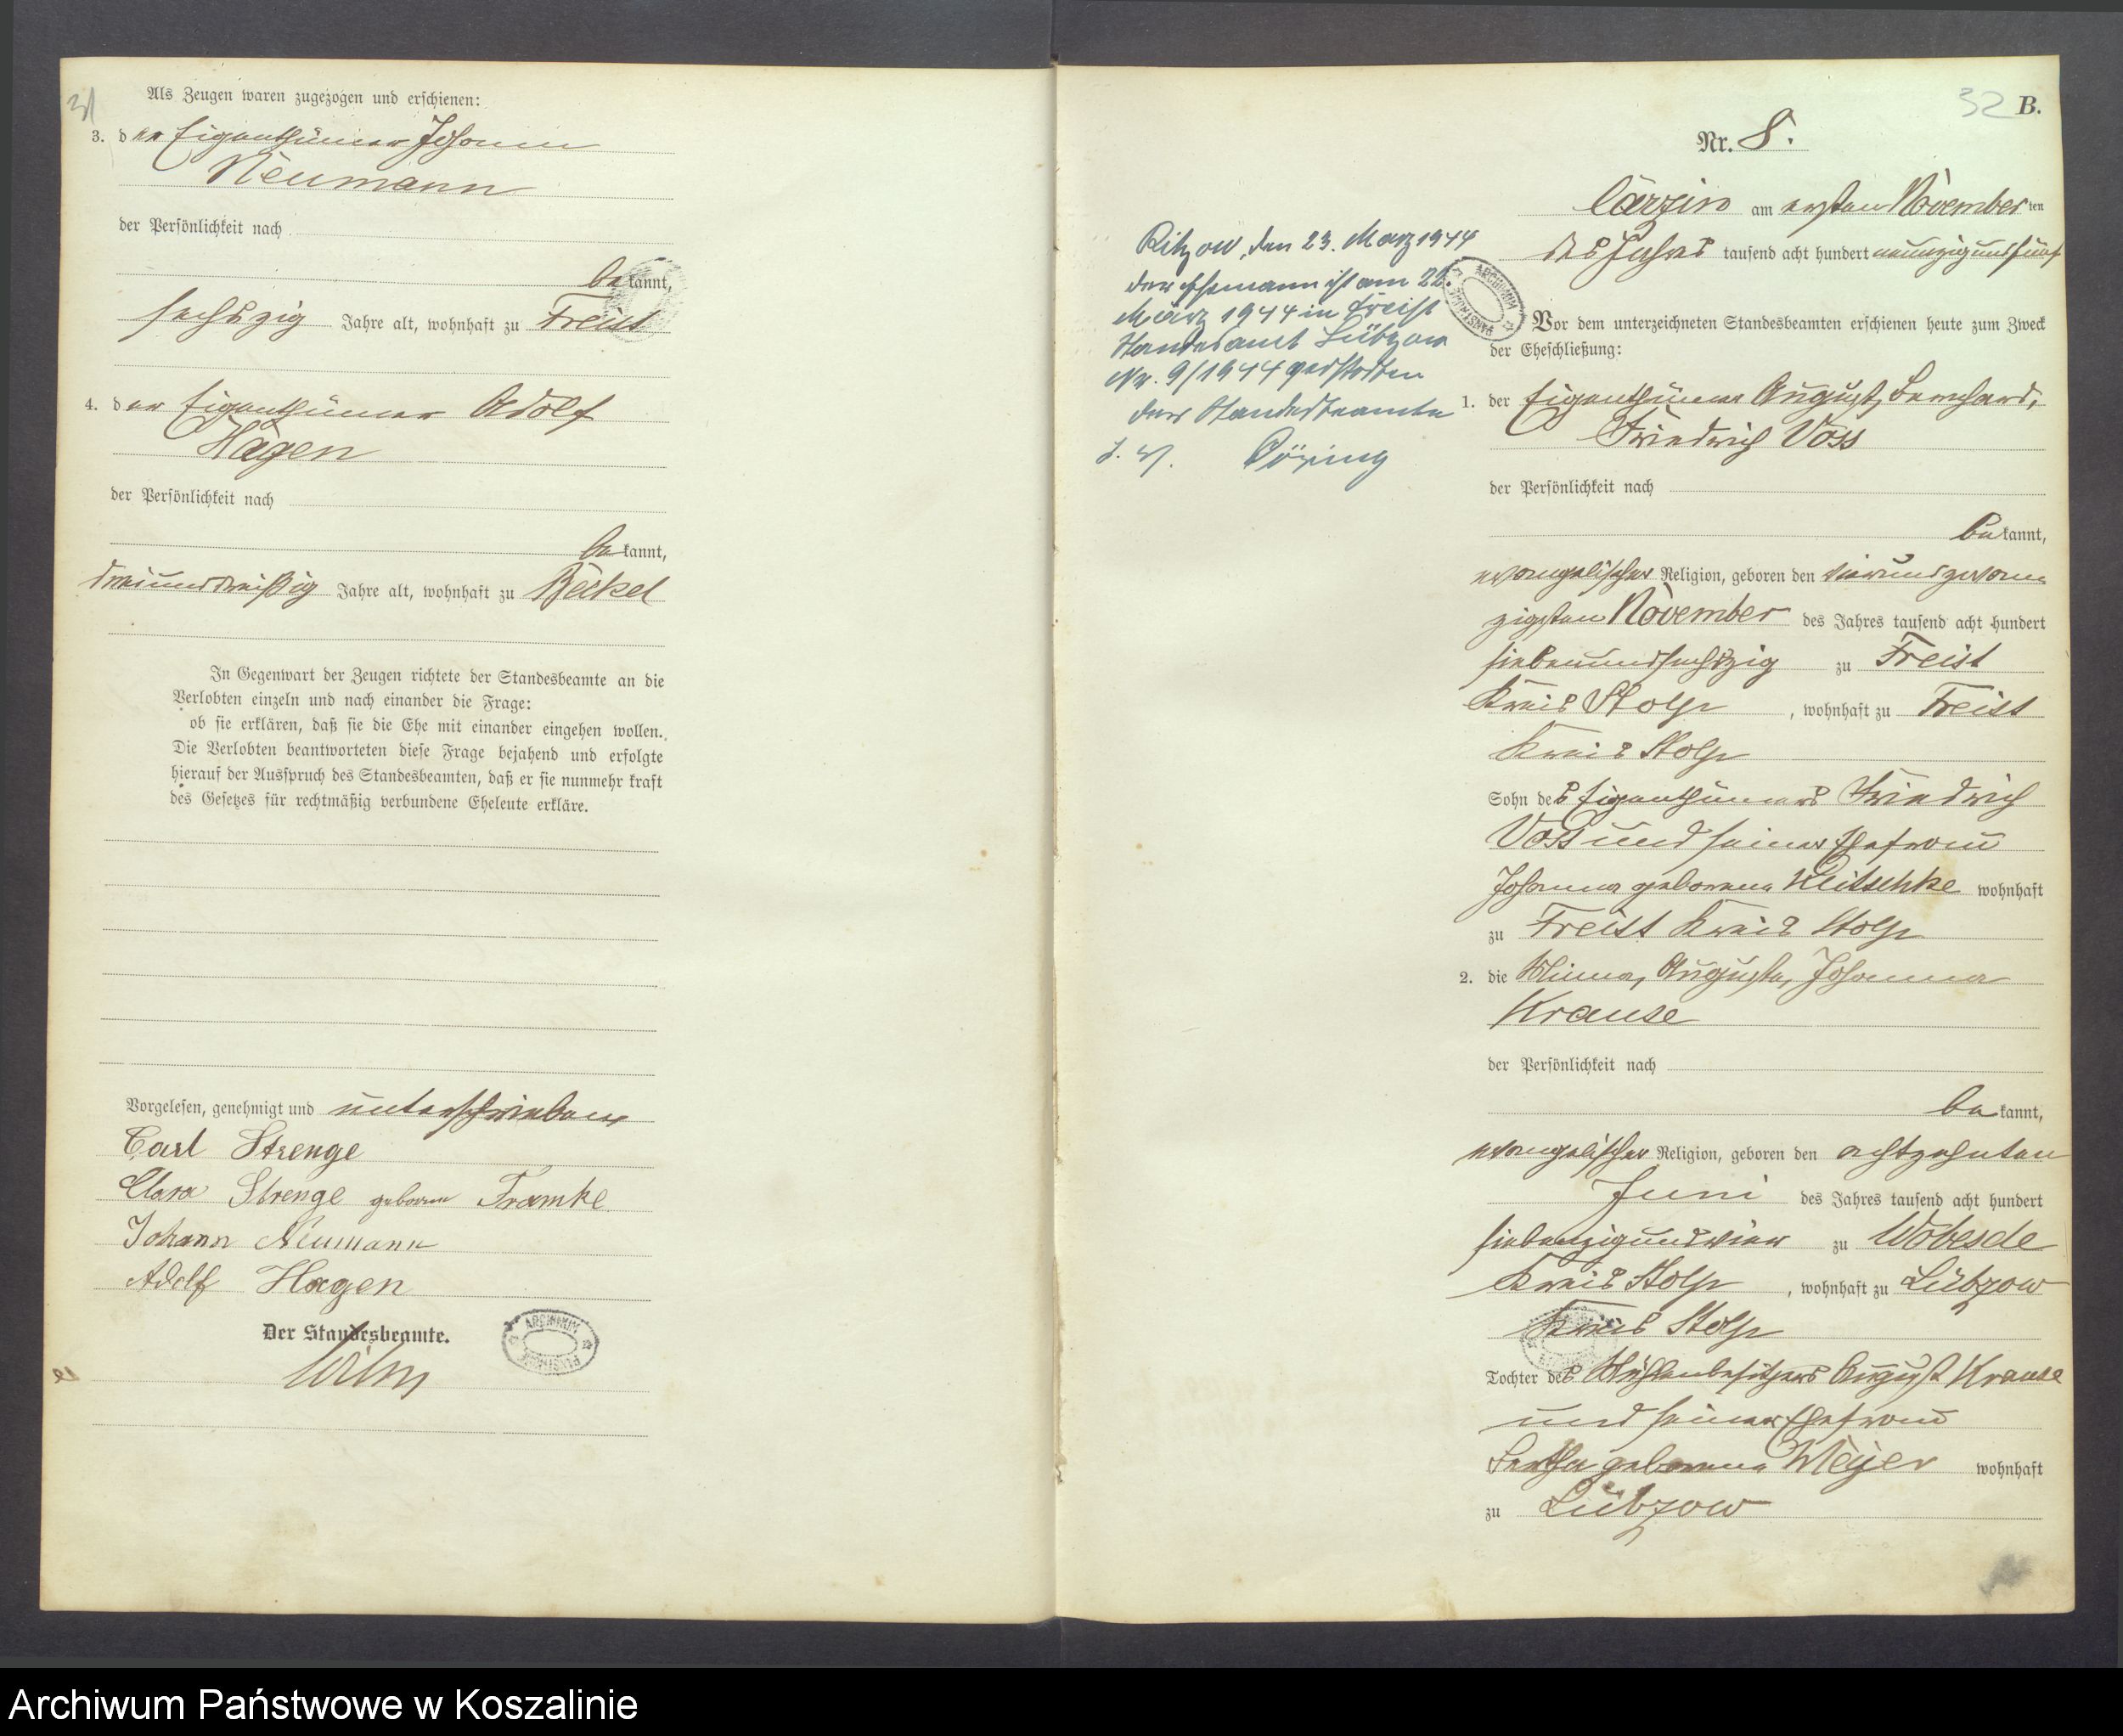 31
Als Zeugen waren zugezogen und erschienen:
3. der Eigenthümer Johann
Neumann
der Persönlichkeit nach
bekannt,
sechszig Jahre alt, wohnhaft zu Freist
4. der Eigenthümer Adolf
Hagen
der Persönlichkeit nach
bekannt,
dreiunddreißig Jahre alt, wohnhaft zu Beckel
In Gegenwart der Zeugen richtete der Standesbeamte an die
Verlobten einzeln und nach einander die Frage:
ob sie erklären, daß sie die Ehe mit einander eingehen wollen.
Die Verlobten beantworteten diese Frage bejahend und erfolgte
hierauf der Ausspruch des Standesbeamten, daß er sie nunmehr kraft
des Gesetzes für rechtmäßig verbundene Eheleute erkläre.
Vorgelesen, genehmigt und unterschrieben
Carl Strenge
Clara Strenge geborene Framke
Johann Neumann
Adolf Hagen
Der Standesbeamte.
Wilm
ARCHIWUM PAŃSTWOWE
32 B.
Nr. 8.
Carzin am ersten November ten
des Jahres tausend acht hundert neunzig und fünf
Ritzow, den 23. März 1944
der Ehemann ist am 22.
März 1944 in Freist
Standesamt Lübzow
Nr. 9/1944 gestorben
der Standesbeamte
J. V.
ARCHIWUM PAŃSTWOWE
Vor dem unterzeichneten Standesbeamten erschienen heute zum Zweck
der Eheschließung:
1. der Eigenthümer August, Bernhard,
Friedrich Voss
der Persönlichkeit nach
bekannt,
evangelischer Religion, geboren den vierundzwan-
zigsten November des Jahres tausend acht hundert
siebenundsechszig zu Freist
Kreis Stolp, wohnhaft zu Freist
Kreis Stolp
Sohn des Eigenthümers Friedrich
Voss und seiner Ehefrau
Johanna geborene Klitschke wohnhaft
zu Freist Kreis Stolp
2. die Minna, Auguste, Johanna
Krause
der Persönlichkeit nach
bekannt,
evangelischer Religion, geboren den achtzehnten
Juni des Jahres tausend acht hundert
siebenzigundvier zu Wobesde
Kreis Stolp, wohnhaft zu Lübzow
Kreis Stolp
Tochter des Mühlenbesitzers August Krause
und seiner Ehefrau
Bertha geborene Meyer wohnhaft
zu Lübzow
Archiwum Państwowe w Koszalinie